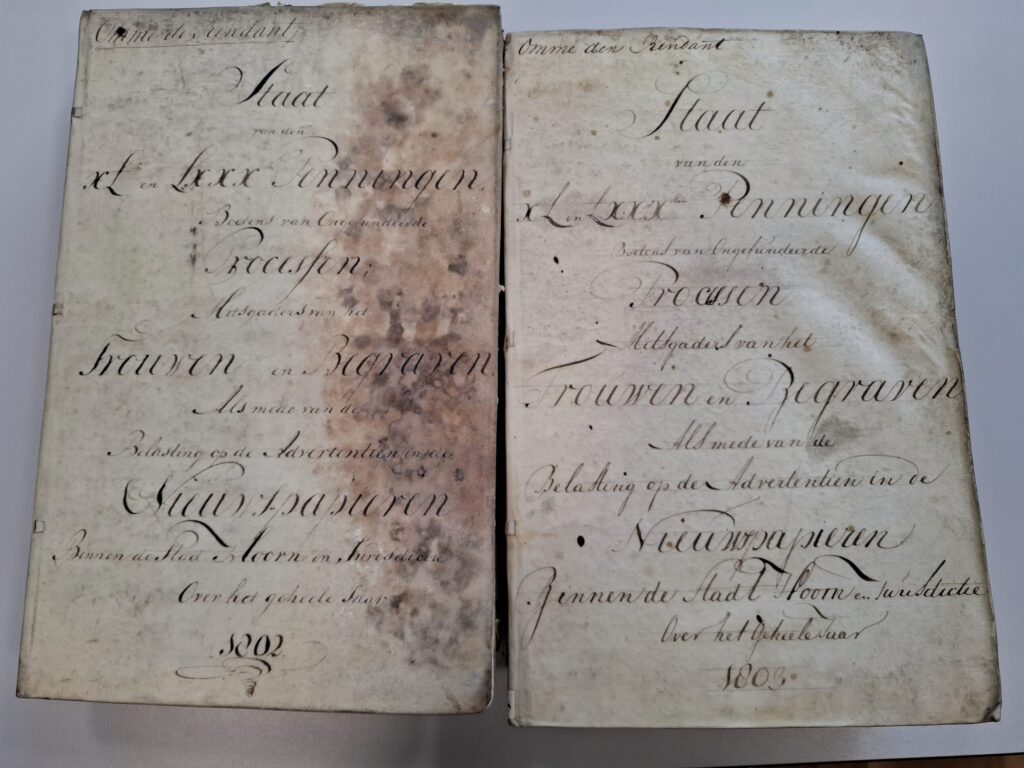 Omme de Rendant
Staat
van den
xL en Lxxx Penningen,
Boetens van Ongefundeerde
Processen;
Mitsgaders van het
Trouwen en Begraven,
Als mede van de
Belasting op de Advertentien in de
Nieuwspapieren
Binnen de Stad Hoorn en Jurisdictie
Over het geheele Jaar
1802
Omme den Rendant
Staat
van den
xL en Lxxxten Penningen
Boetens van Ongefundeerde
Processen
Mitsgaders van het
Trouwen en Begraven
Als mede van de
Belasting op de Advertentien in de
Nieuwspapieren
Binnen de Stadt Hoorn en Jurisdictie
Over het Geheele Jaar
1803